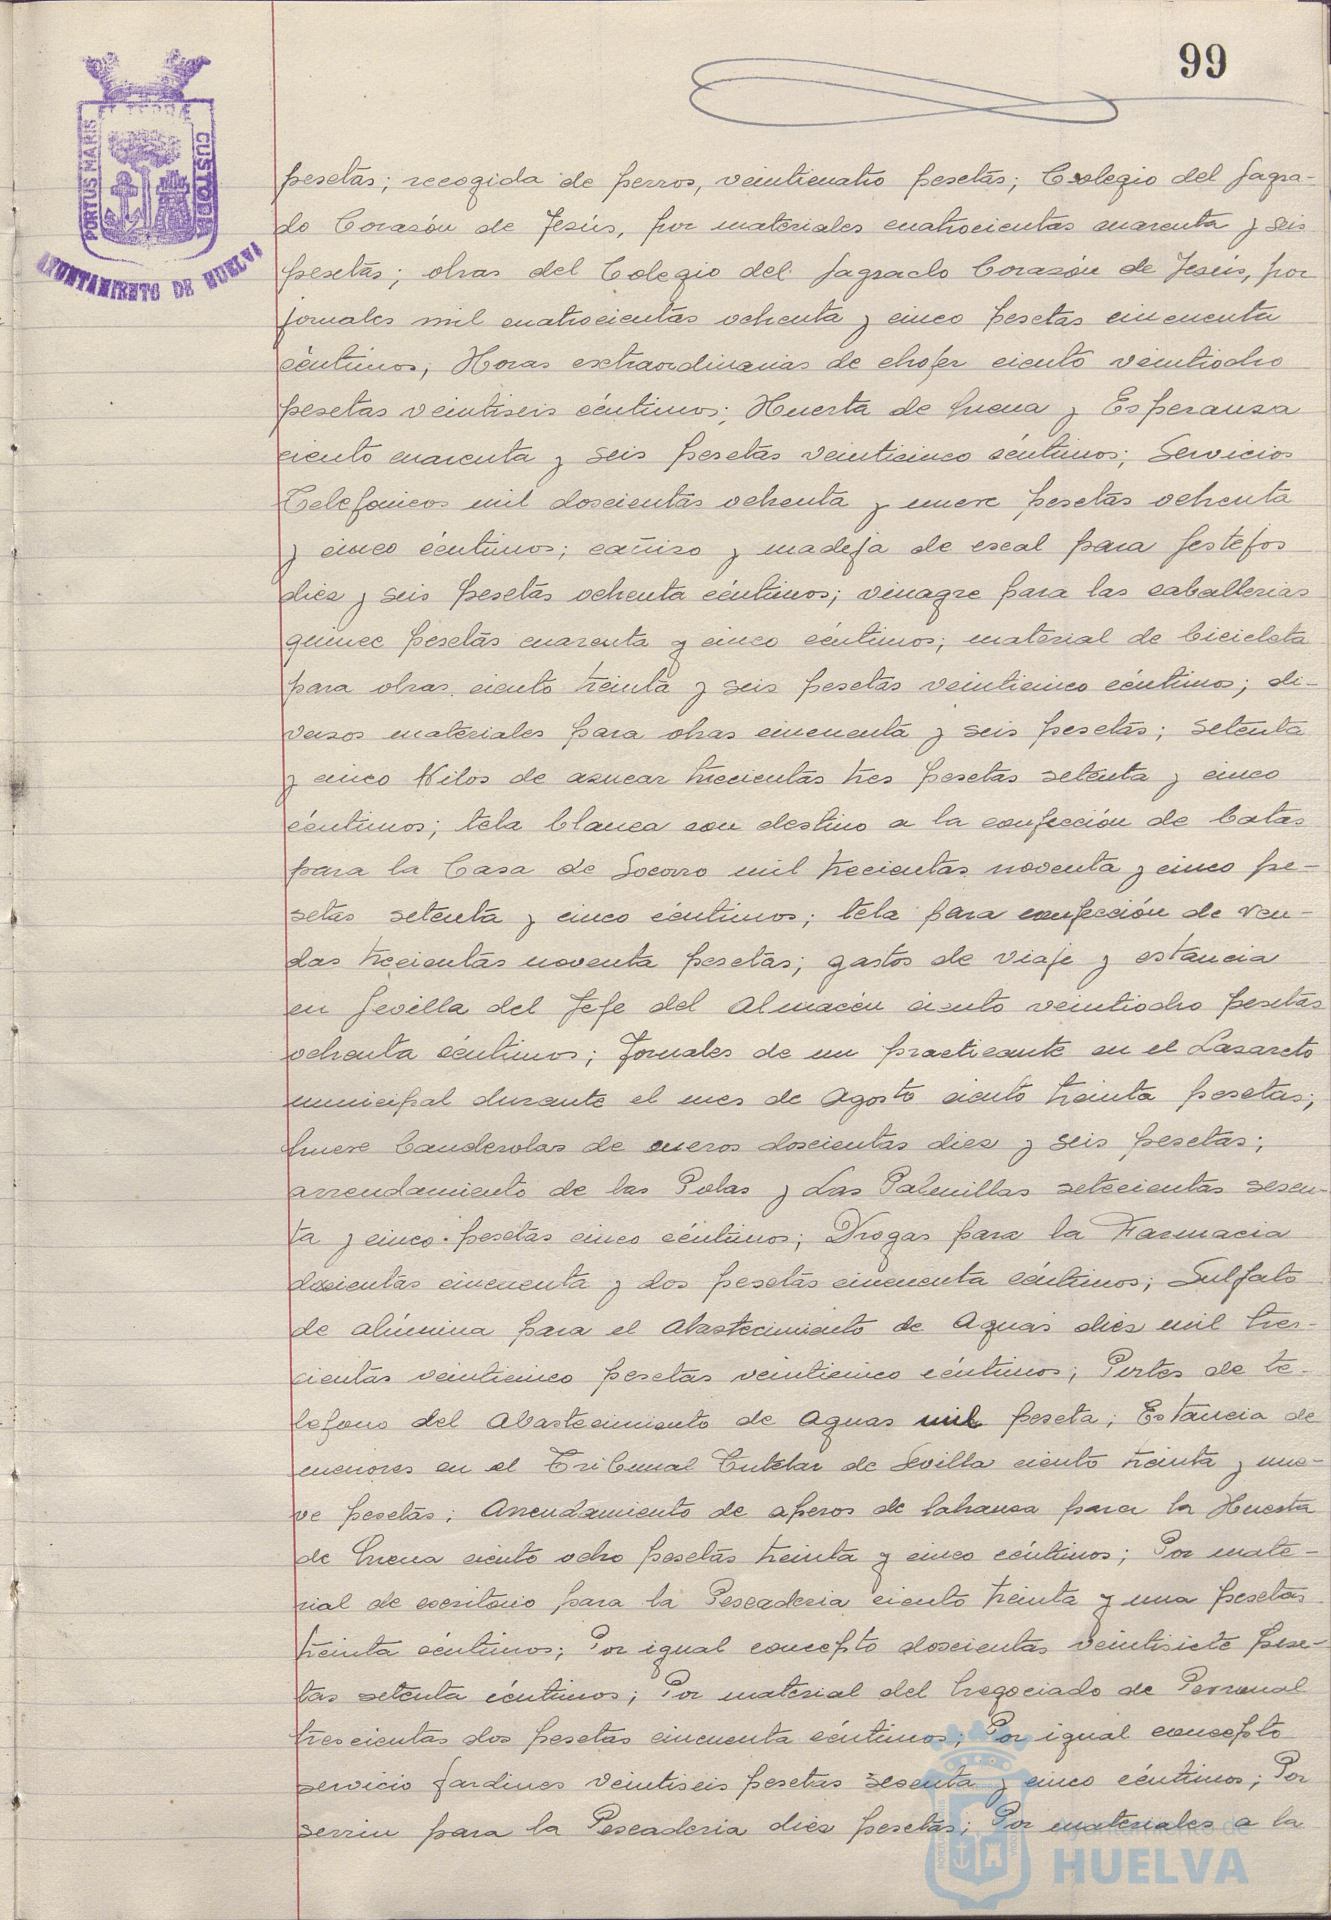 99
PORTUS MARIS ET TERRÆ CUSTODIA
AYUNTAMIENTO DE HUELVA
pesetas; recogida de perros, veinticuatro pesetas; Colegio del Sagra-
do Corazón de Jesús, por materiales cuatrocientas cuarenta y seis
pesetas; obras del Colegio del Sagrado Corazón de Jesús, por
jornales mil cuatrocientas ochenta y cinco pesetas cincuenta
céntimos; Horas extraordinarias de chofer ciento veintiocho
pesetas veintiseis céntimos; Huerta de Mena y Esperanza
ciento cuarenta y seis pesetas veinticinco céntimos; Servicios
Telefonicos mil doscientas ochenta y nueve pesetas ochenta
y cinco céntimos; cañizo y madeja de escal para festejos
diez y seis pesetas ochenta céntimos; vinagre para las caballerias
quince pesetas cuarenta y cinco céntimos; material de bicicleta
para obras ciento treinta y seis pesetas veinticinco céntimos; di-
versos materiales para obras cincuenta y seis pesetas; setenta
y cinco Kilos de azucar trecientas tres pesetas setenta y cinco
céntimos; tela blanca con destino a la confección de batas
para la Casa de Socorro mil trecientas noventa y cinco pe-
setas setenta y cinco céntimos; tela para confección de ven-
das trecientas noventa pesetas; gastos de viaje y estancia
en Sevilla del Jefe del Almacén ciento veintiocho pesetas
ochenta céntimos; Jornales de un practicante en el Lazareto
municipal durante el mes de Agosto ciento treinta pesetas;
nueve banderolas de cueros doscientas diez y seis pesetas;
arrendamiento de las Polas y Las Palmillas setecientas sesen-
ta y cinco pesetas cinco céntimos; Drogas para la Farmacia
doscientas cincuenta y dos pesetas cincuenta céntimos; Sulfato
de alúmina para el Abastecimiento de Aguas diez mil tres-
cientas veinticinco pesetas veinticinco céntimos; Postes de te-
lefono del Abastecimiento de Aguas mil peseta; Estancia de
menores en el Tribunal Tutelar de Sevilla ciento treinta y nue-
ve pesetas; Arrendamiento de aperos de labranza para la Huerta
de Mena ciento ocho pesetas treinta y cinco céntimos; Por mate-
rial de escritorio para la Pescaderia ciento treinta y una pesetas
treinta céntimos; Por igual concepto doscientas veintisiete pese-
tas setenta céntimos; Por material del Negociado de Personal
trescientas dos pesetas cincuenta céntimos; Por igual concepto
servicio Jardines veintiseis pesetas sesenta y cinco céntimos; Por
serrin para la Pescaderia diez pesetas; Por materiales a la
Ayuntamiento de
HUELVA